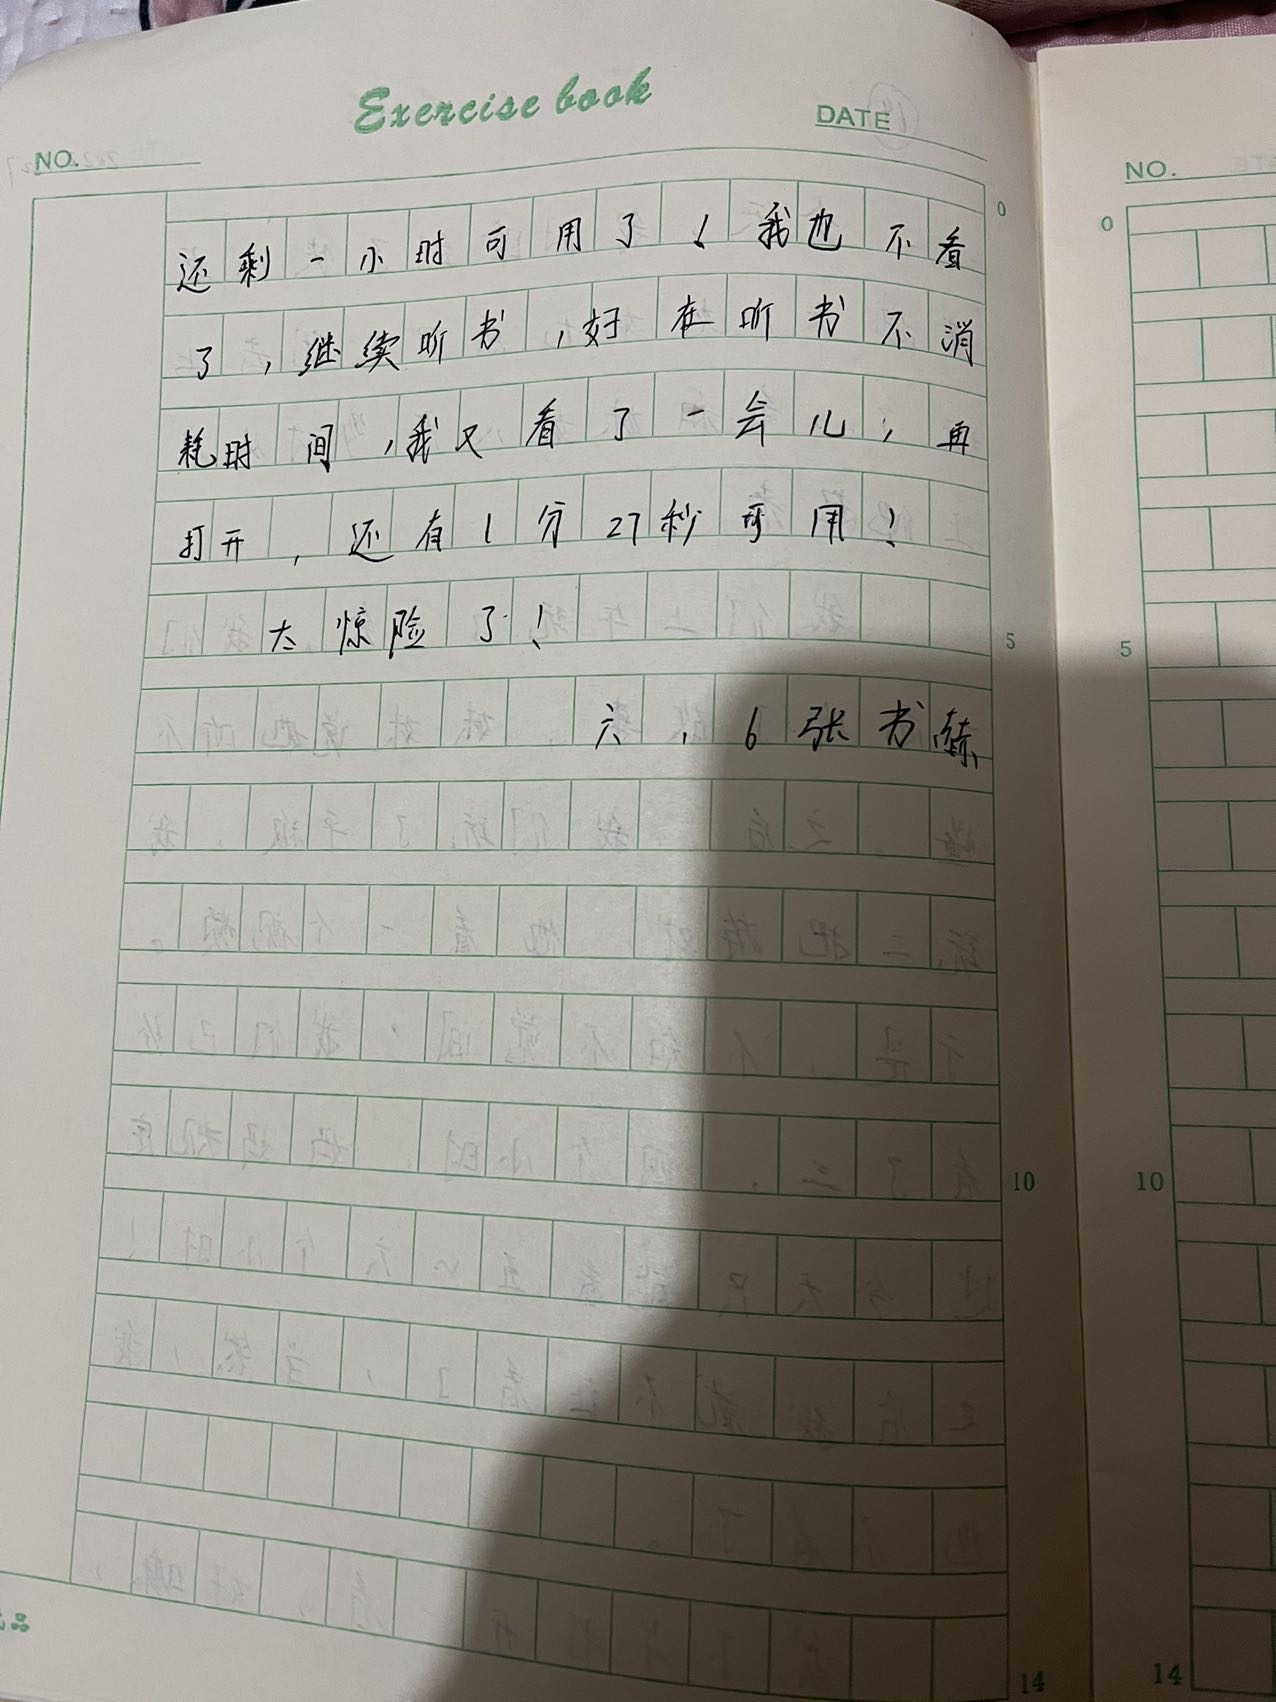 Exercise book
DATE
NO.
NO.
还剩一小时可用了！我也不看
了，继续听书，好在听书不消
耗时间，我又看了一会儿，再
打开，还有1分27秒可用！
太惊险了！
六，6张书
0
0
5
5
10
10
14
14
品